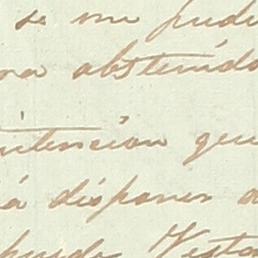 se me pudi
na abstenido
intencion que
á disponer a
puede Vista